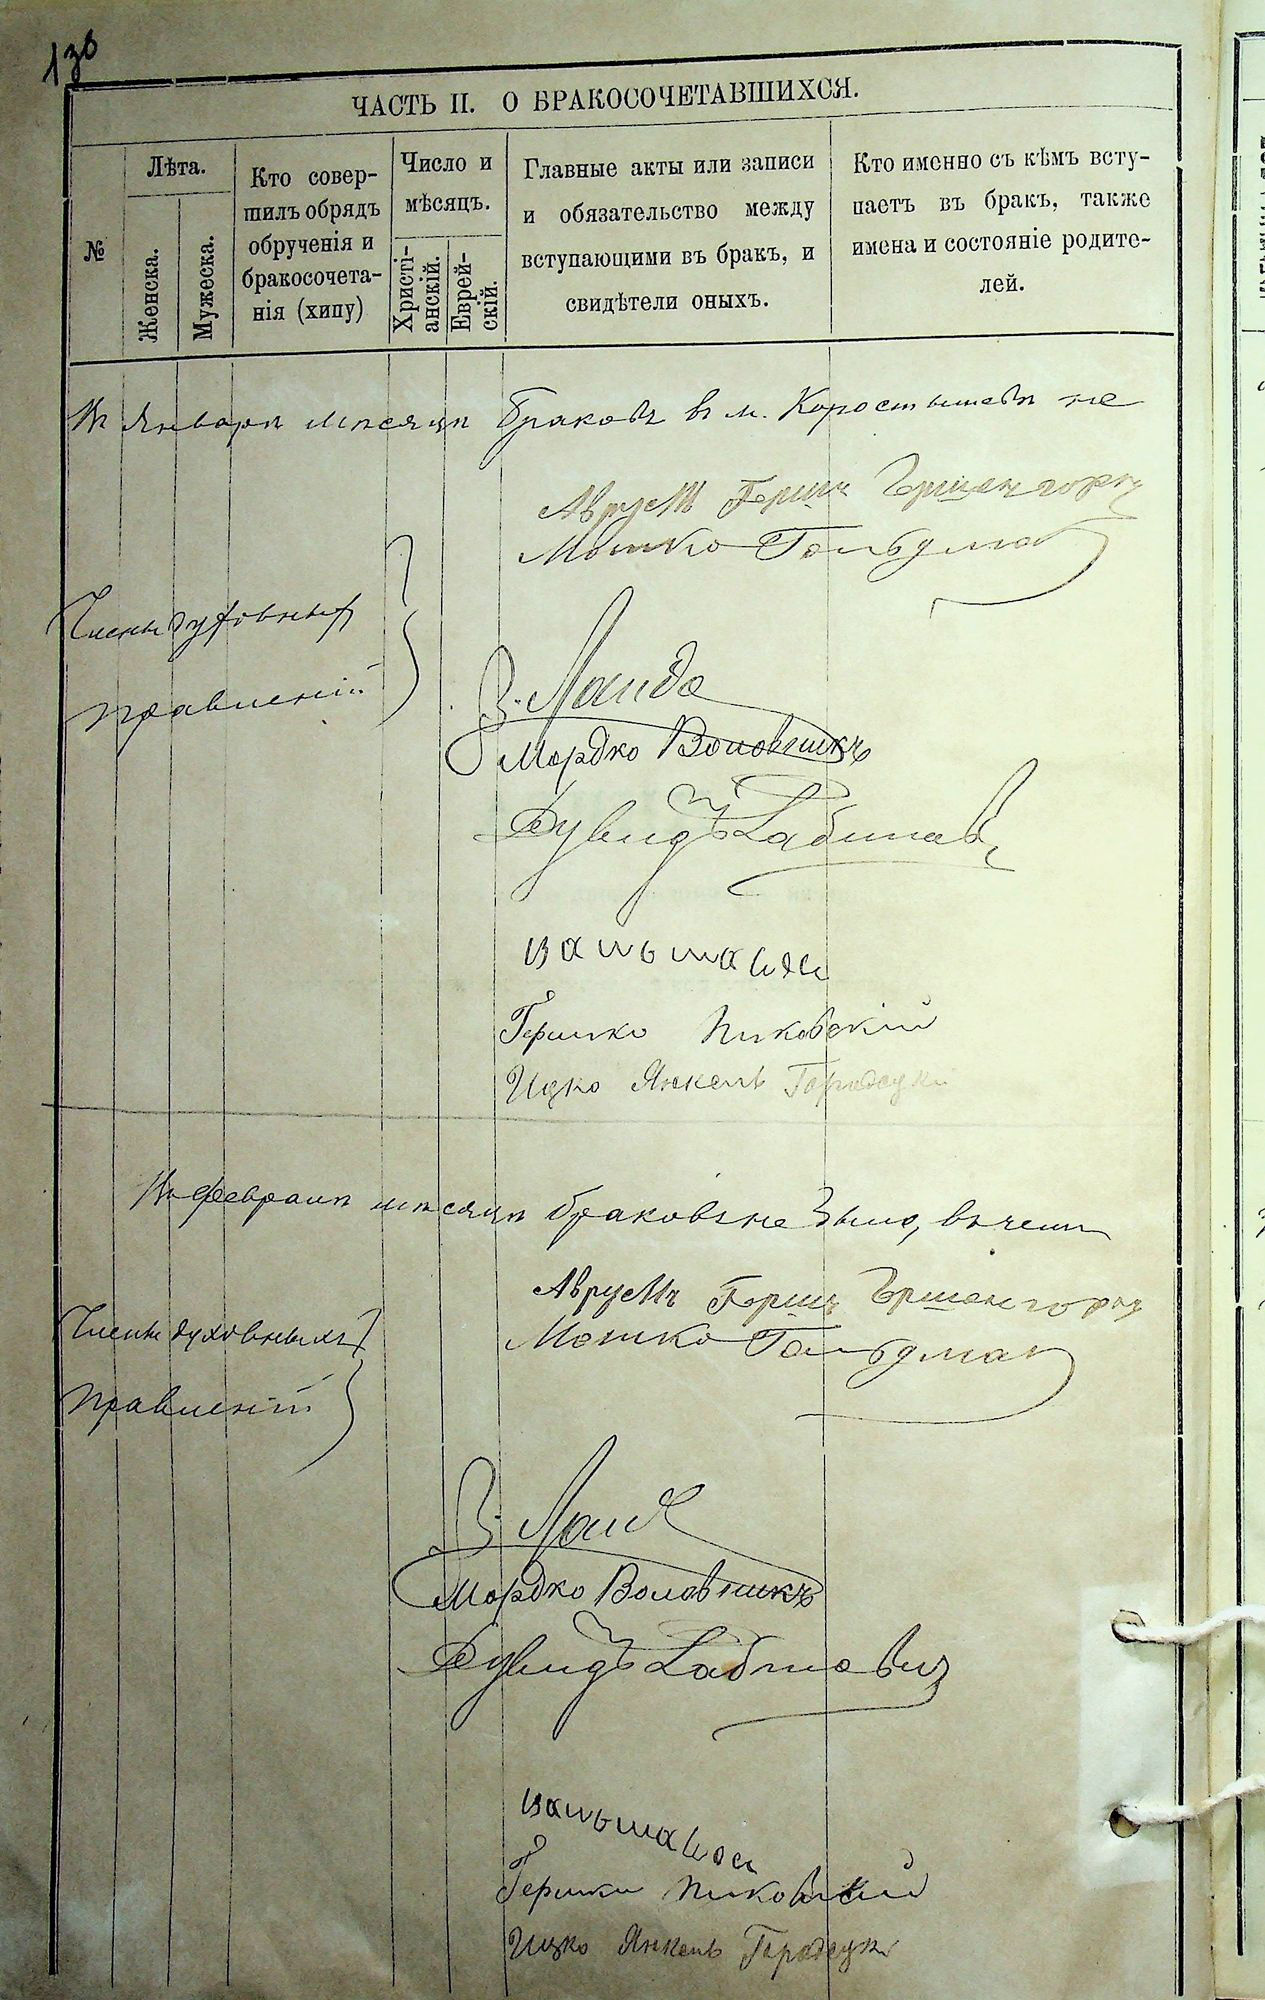 136
ЧАСТЬ II. О БРАКОСОЧЕТАВШИХСЯ.
№
Лѣта.
Женска.
Мужеска.
Кто совер-
шилъ обрядъ
обрученія и
бракосочета-
нія (хипу)
Число и
мѣсяцъ.
Христі-
анскій.
Еврей-
скій.
Главные акты или записи
и обязательство между
вступающими въ бракъ, и
свидѣтели оныхъ.
Кто именно съ кѣмъ всту-
паетъ въ бракъ, также
имена и состояніе родите-
лей.
Въ Январѣ мѣсяцѣ браковъ въ м. Коростышевѣ не
Аврумъ Гершъ
Мошко Гольдман
Члены духовныхъ
правленій
З. Ланда
Мордко Воловникъ
Дувидъ
Гершко Пиковскій
Ицко Янкель Городецки
Въ Февралѣ мѣсяцѣ браковъ не было, въ чемъ
Аврумъ Гершъ
Мошко Гольдман
Члены духовныхъ
правленій
З. Ланда
Мордко Воловникъ
Дувидъ
Гершко Пиковскій
Ицко Янкель Городецки